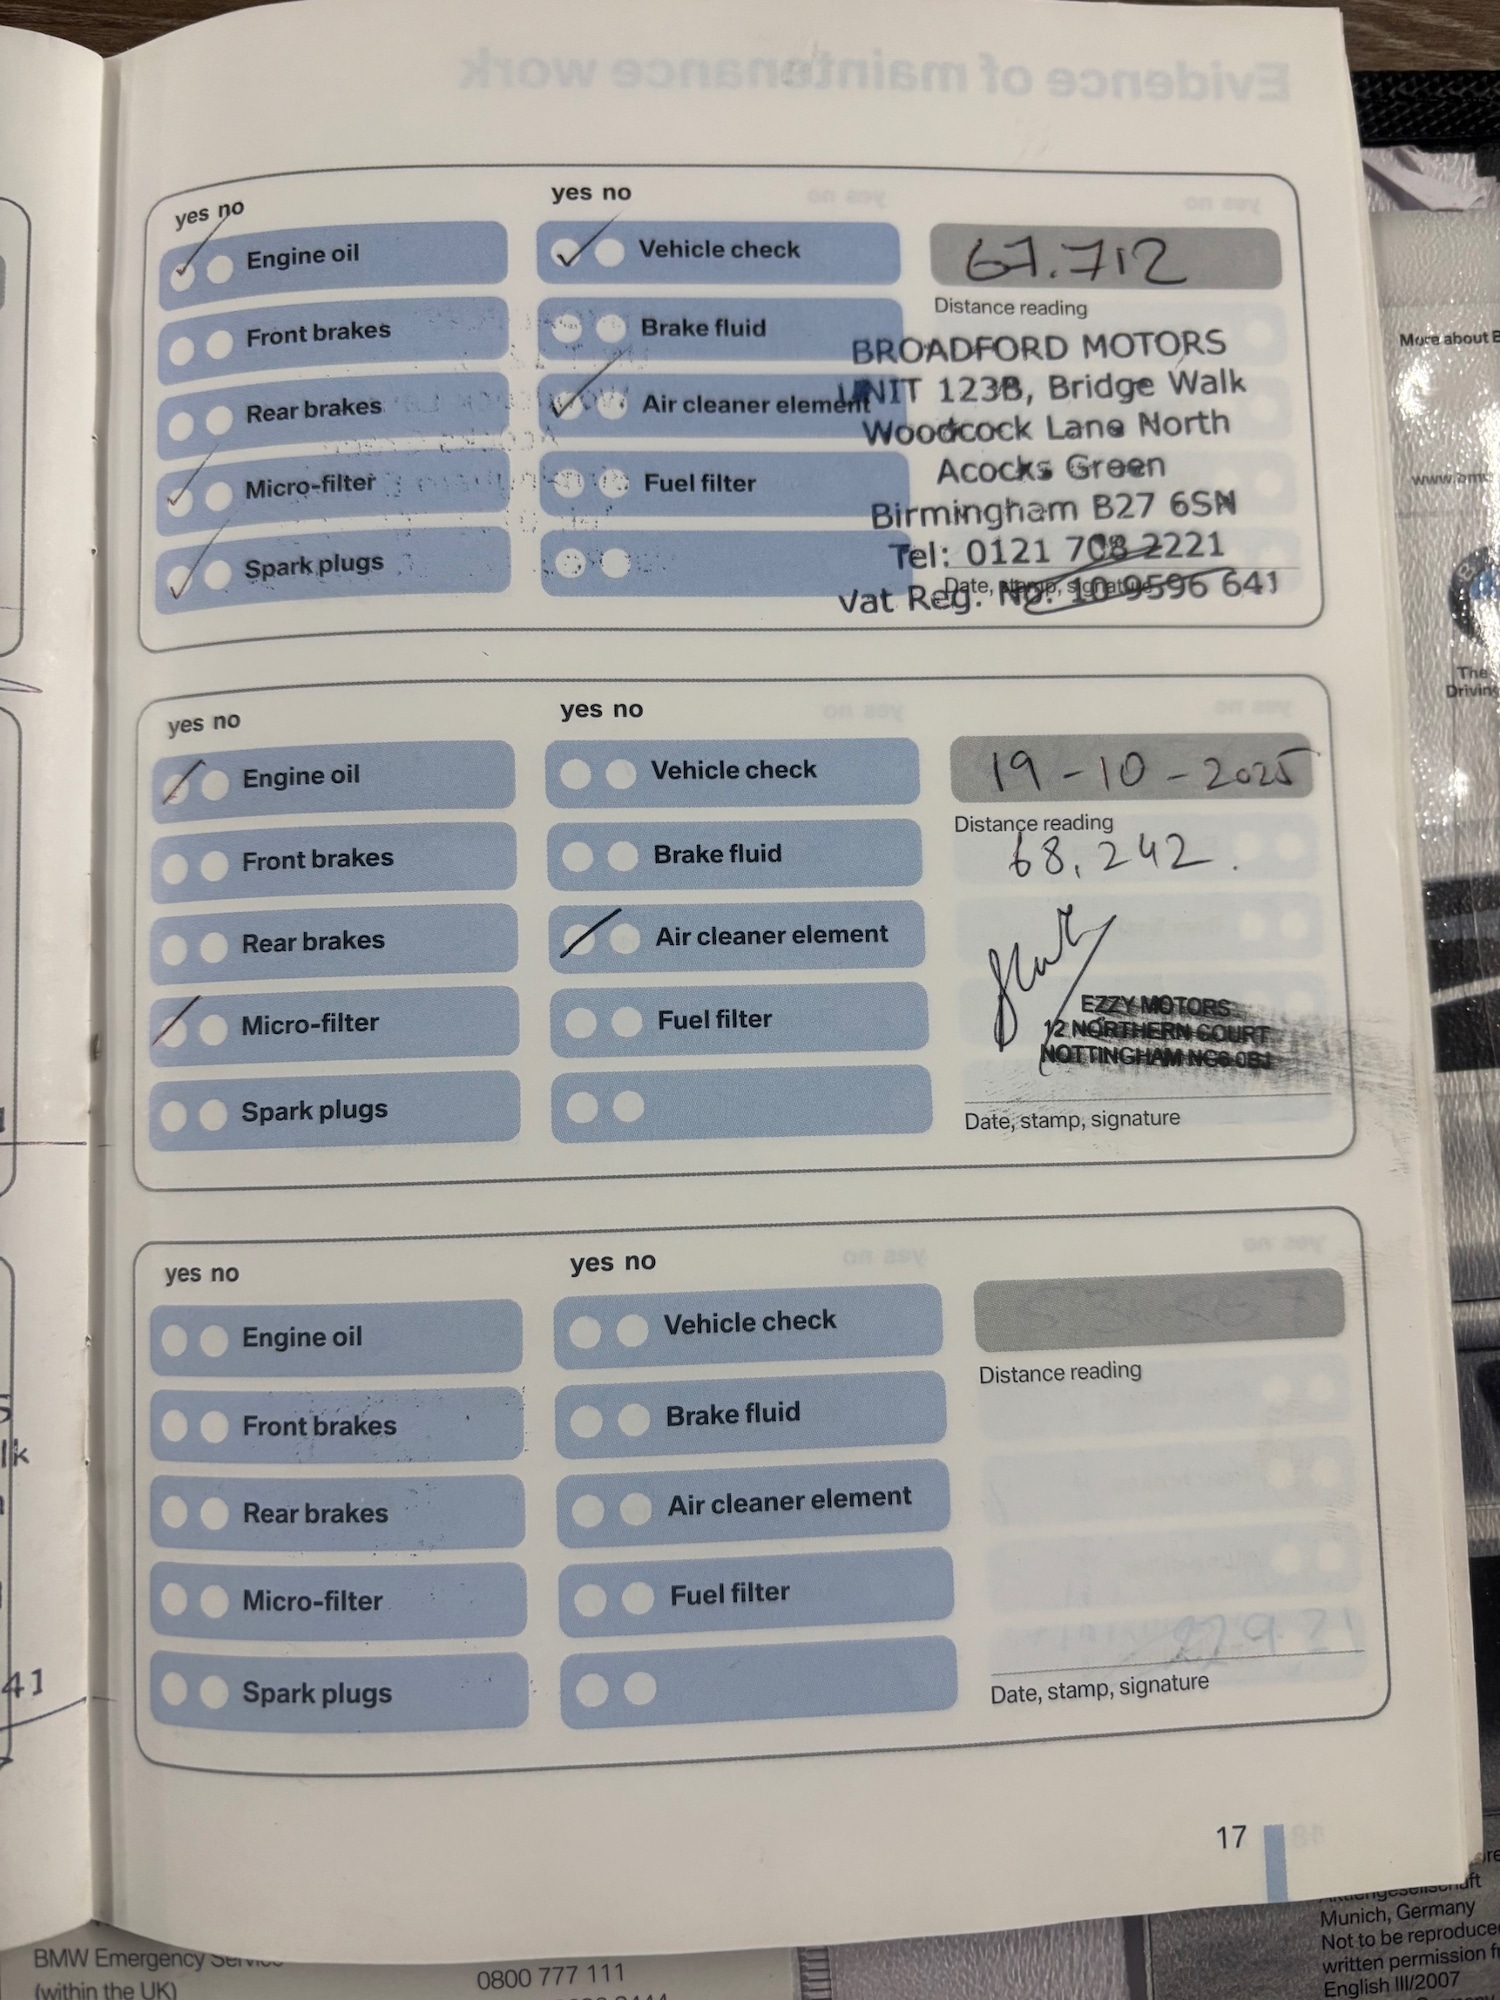 yes no
yes no
Engine oil
Vehicle check
67.712
Distance reading
Front brakes
Brake fluid
BROADFORD MOTORS
UNIT 123B, Bridge Walk
Rear brakes
Air cleaner element
Woodcock Lane North
Acocks Green
Micro-filter
Fuel filter
Birmingham B27 6SN
Tel: 0121 708 2221
Spark plugs
Date, stamp, signature
Vat Reg. No: 10 9596 641
yes no
yes no
Engine oil
Vehicle check
19-10-2025
Distance reading
68,242.
Front brakes
Brake fluid
Rear brakes
Air cleaner element
EZZY MOTORS
12 NORTHERN COURT
NOTTINGHAM NG6 0BJ
Micro-filter
Fuel filter
Spark plugs
Date, stamp, signature
yes no
yes no
Engine oil
Vehicle check
Distance reading
Front brakes
Brake fluid
Rear brakes
Air cleaner element
Micro-filter
Fuel filter
Spark plugs
Date, stamp, signature
17
41
lk
More about
The
Driving
BMW Emergency Service
(within the UK)
0800 777 111
Munich, Germany
Not to be reproduced
written permission
English III/2007